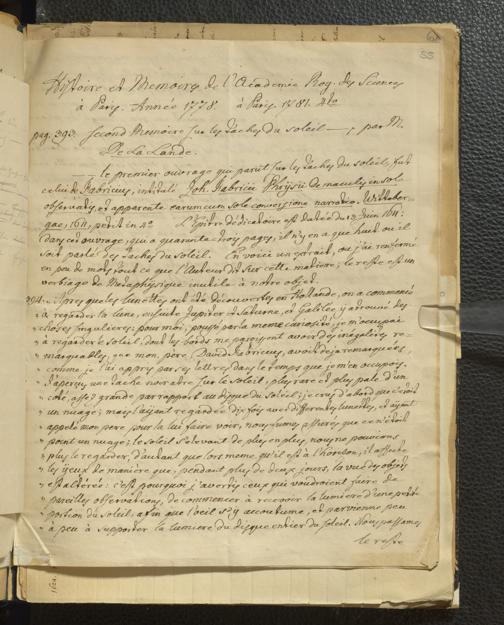 55
Histoire et Memoires de l'Academie Roy. des Sciences
à Paris. Année 1778. à Paris. 1781. 4to
pag. 393. Second Memoire sur les taches du soleil —, par M.
De La Lande.
le premier ouvrage qui parut sur les taches du soleil, fut
celui de Fabricius, intitulé Joh. Fabricii Phrysii de maculis in sole
observatis, et apparente earum cum sole conversione narratio. Witteber
gae, 1611, petit in 4º. L'Epitre dédicatoire est datée du 13 Juin 1611:
Dans cet ouvrage, qui a quarante trois pages, il n'y en a que huit ou il
soit parlé des taches du soleil. En voici un extrait, ou j'ai renfermé
en peu de mots tout ce que l'Auteur dit sur cette matiere; le reste est un
verbiage de Metaphysique inutile à notre objet.
394. Apres que les lunettes ont été decouvertes en Hollande, on a commencé
à regarder la lune, ensuite Jupiter et Saturne, et Galilée y a trouvé des
choses singulieres: pour moi, poussé par la meme curiosité, je m'occupai
à regarder le soleil, dont les bords me parurent avoir des inégalités re-
marquables, que mon père, David Fabricius, avoit deja remarquées,
comme je l'ai appris par ses lettres dans le temps que je m'en occupois.
J'aperçus une tache noiratre sur le soleil, plus rare et plus pale d'un
coté, assez grande par rapport au disque du soleil; je crus d'abord que c'etoit
un nuage; mais l'ayant regardée dix fois avec differentes lunettes, et ayant
appelé mon pere pour la lui faire voir, nous fumes assurés que ce n'étoit
point un nuage; le soleil s'élevant de plus en plus, nous ne pouvions
plus le regarder, d'autant que lors meme qu'il est à l'horison, il affecte
les yeux de maniere que, pendant plus de deux jours, la vue des objets
est altérée: c'est pourquoi j'avertis ceux qui voudroient faire de
pareilles observations, de commencer à recevoir la lumiere d'une petite
portion du soleil, afin que l'oeil s'y accoutume, et parvienne peu
à peu à supporter la lumiere du disque entier du soleil. Nous passames
le reste